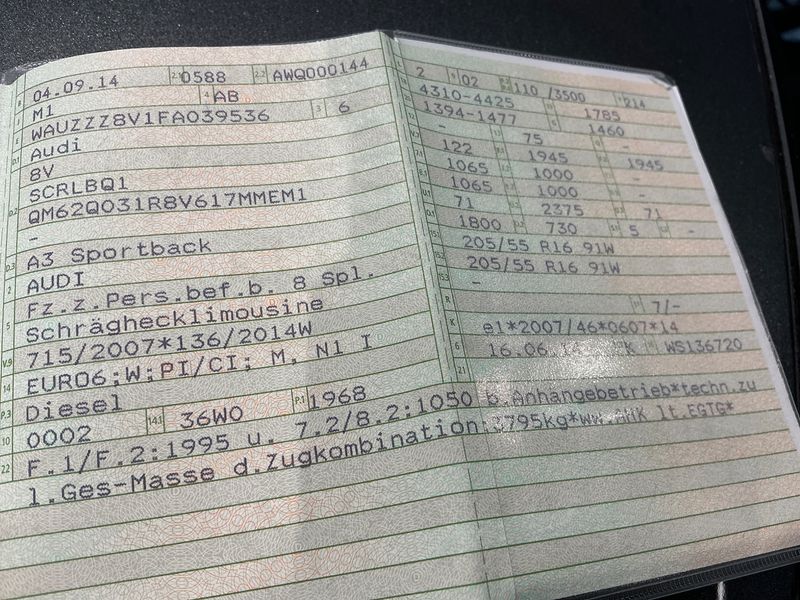 B 04.09.14 2.1 0588 2.2 AWQ000144
J M1 4 AB
E WAUZZZ8V1FA039536 3 6
D.1 Audi
8V
D.2 SCRLBQ1
QM62Q031R8V617MMEM1
-
D.3 A3 Sportback
2 AUDI
5 Fz.z.Pers.bef.b. 8 Spl.
Schräghecklimousine
V.9 715/2007*136/2014W
14 EURO6;W;PI/CI; M, N1 I
P.3 Diesel
10 0002 14.1 36W0 P.1 1968
22 F.1/F.2:1995 u. 7.2/8.2:1050 b.Anhangebetrieb*techn.zu
l.Ges-Masse d.Zugkombination:3795kg*ww.AHK lt.EGTG*
2 9 02 110 /3500 214
4310-4425 1785
1394-1477 1460
- 75 -
122 1945 1945
1065 1000 -
1065 1000 -
71 2375 71
1800 730 5 -
205/55 R16 91W
205/55 R16 91W
-
R 7/-
K e1*2007/46*0607*14
6 16.06.14 K WS136720
21